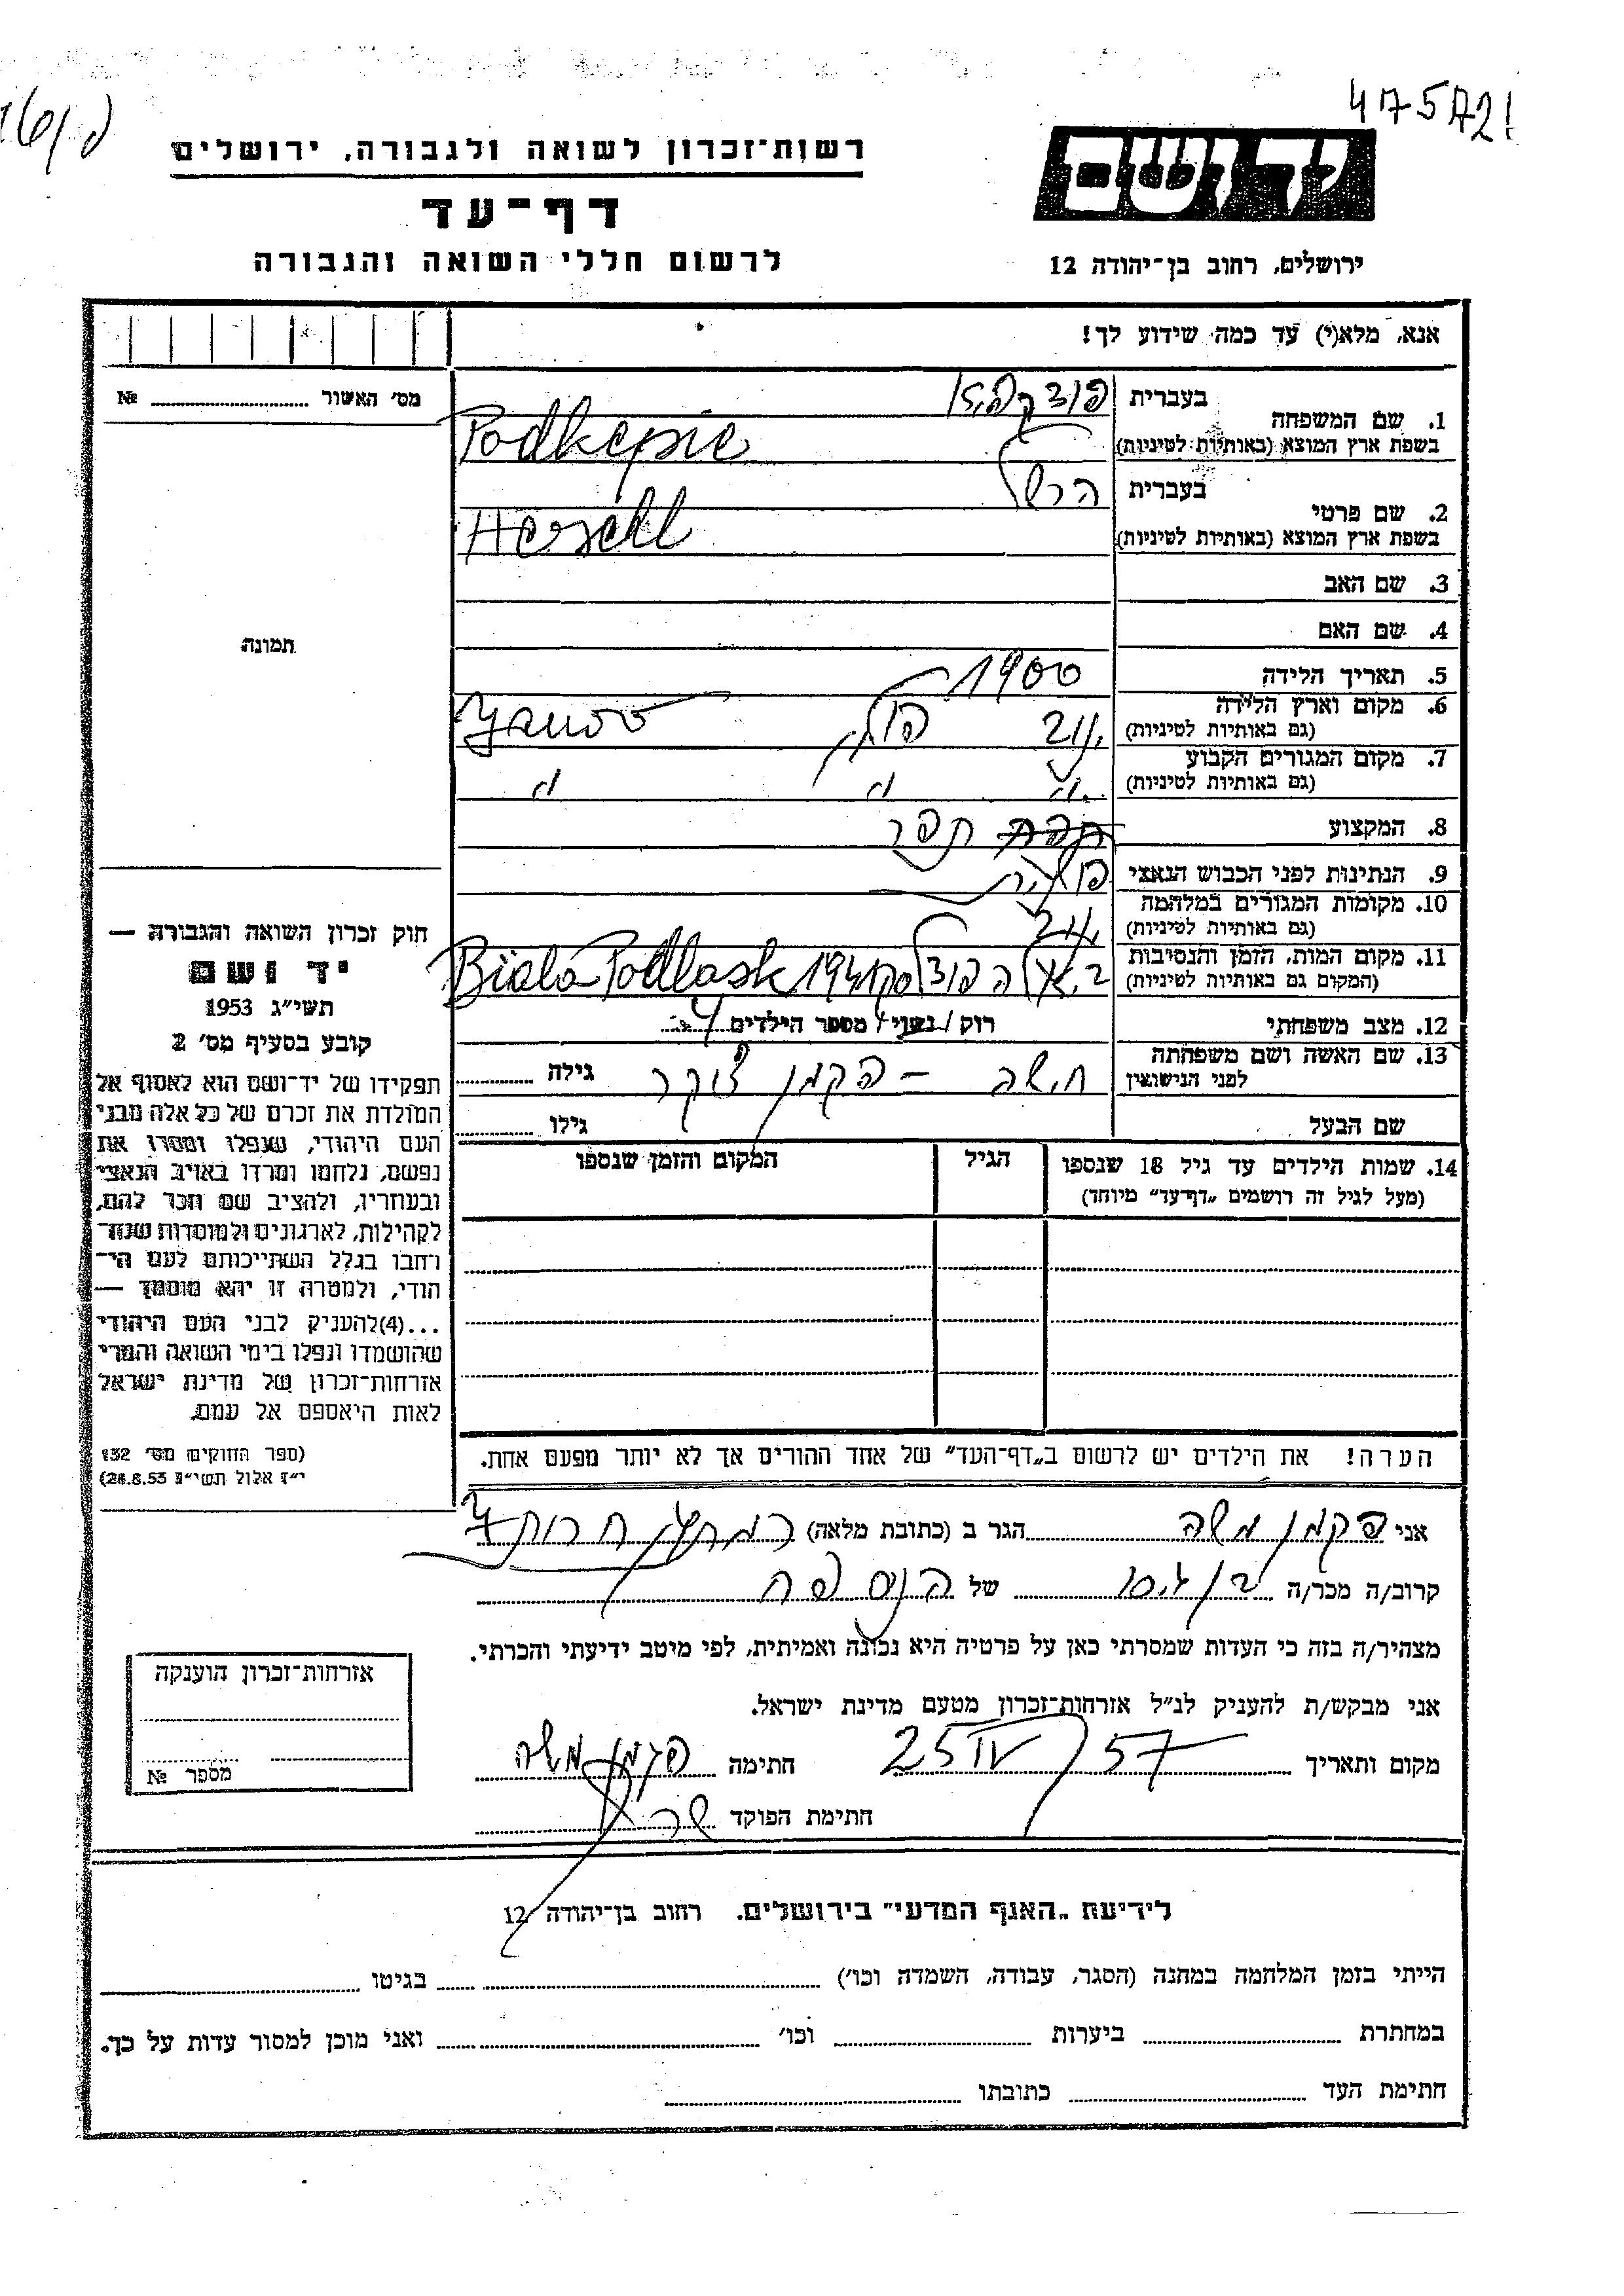 475721
רשות־זכרון לשואה ולגבורה, ירושלים
דף־עד
לרשום חללי השואה והגבורה
יד ושם
ירושלים, רחוב בן־יהודה 12
אנא, מלא(י) עד כמה שידוע לך!
מס׳ האשור ........ №
תמונה
1. שם המשפחה בעברית
בשפת ארץ המוצא (באותיות לטיניות) Podkepie
2. שם פרטי בעברית הרשל
בשפת ארץ המוצא (באותיות לטיניות) Hersehl
3. שם האב
4. שם האם
5. תאריך הלידה 1900
6. מקום וארץ הלידה ינוב פולין Yanow
(גם באותיות לטיניות)
7. מקום המגורים הקבוע " " "
(גם באותיות לטיניות)
8. המקצוע תפר
9. הנתינות לפני הכבוש הנאצי פולנית
10. מקומות המגורים במלחמה ינוב
(גם באותיות לטיניות)
11. מקום המות, הזמן והנסיבות 1941 Biala Podlask
(המקום גם באותיות לטיניות)
12. מצב משפחתי רוק / נשוי / מספר הילדים 4
13. שם האשה ושם משפחתה לפני הנישואין פקמן גילה ........
שם הבעל גילו ........
14. שמות הילדים עד גיל 18 שנספו הגיל המקום והזמן שנספו
(מעל לגיל זה רושמים „דף־עד״ מיוחד)
הערה! את הילדים יש לרשום ב„דף־העד״ של אחד ההורים אך לא יותר מפעם אחת.
חוק זכרון השואה והגבורה —
יד ושם
תשי״ג 1953
קובע בסעיף מס׳ 2
תפקידו של יד־ושם הוא לאסוף אל
המולדת את זכרם של כל אלה מבני
העם היהודי, שנפלו ומסרו את
נפשם, נלחמו ומרדו באויב הנאצי
ובעוזריו, ולהציב שם וזכר להם,
לקהילות, לארגונים ולמוסדות שנח־
רחבו בגלל השתייכותם לעם הי־
הודי, ולמטרה זו יהא מוסמך —
...(4)להעניק לבני העם היהודי
שהושמדו ונפלו בימי השואה והמרי
אזרחות־זכרון של מדינת ישראל
לאות היאספם אל עמם.
(ספר החוקים מס׳ 132
י״ז אלול תשי״ג 28.8.53)
אני פקמן משה הגר ב (כתובת מלאה)
קרוב/ה מכר/ה בן גיסו של הנספה
מצהיר/ה בזה כי העדות שמסרתי כאן על פרטיה היא נכונה ואמיתית, לפי מיטב ידיעתי והכרתי.
אני מבקש/ת להעניק לנ״ל אזרחות־זכרון מטעם מדינת ישראל.
מקום ותאריך 25 IV 57 חתימה פקמן משה
חתימת הפוקד
אזרחות־זכרון הוענקה
מספר №
לידיעת „האגף המדעי״ בירושלים. רחוב בן־יהודה 12
הייתי בזמן המלחמה במחנה (הסגר, עבודה, השמדה וכו׳) ........ בגיטו ........
במחתרת ........ ביערות ........ וכו׳ ........ ואני מוכן למסור עדות על כך.
חתימת העד ........ כתובתו ........